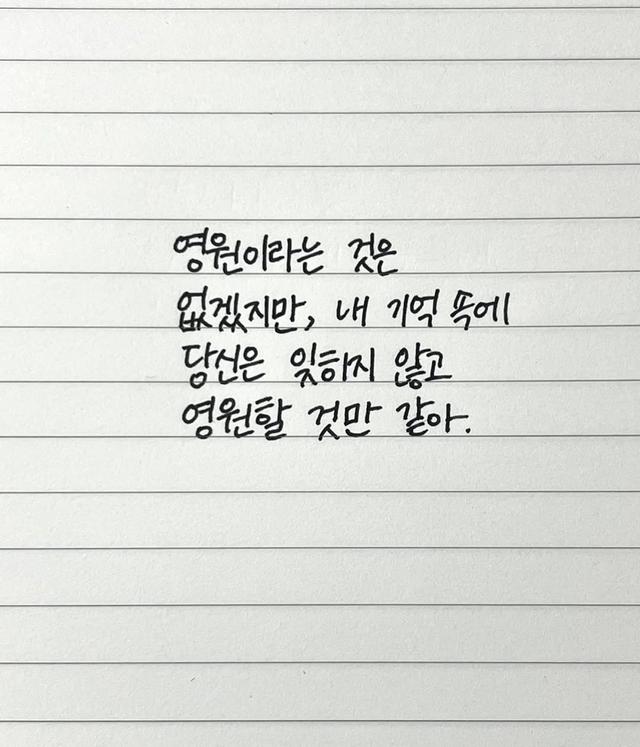 영원이라는 것은
없겠지만, 내 기억 속에
당신은 잊히지 않고
영원할 것만 같아.